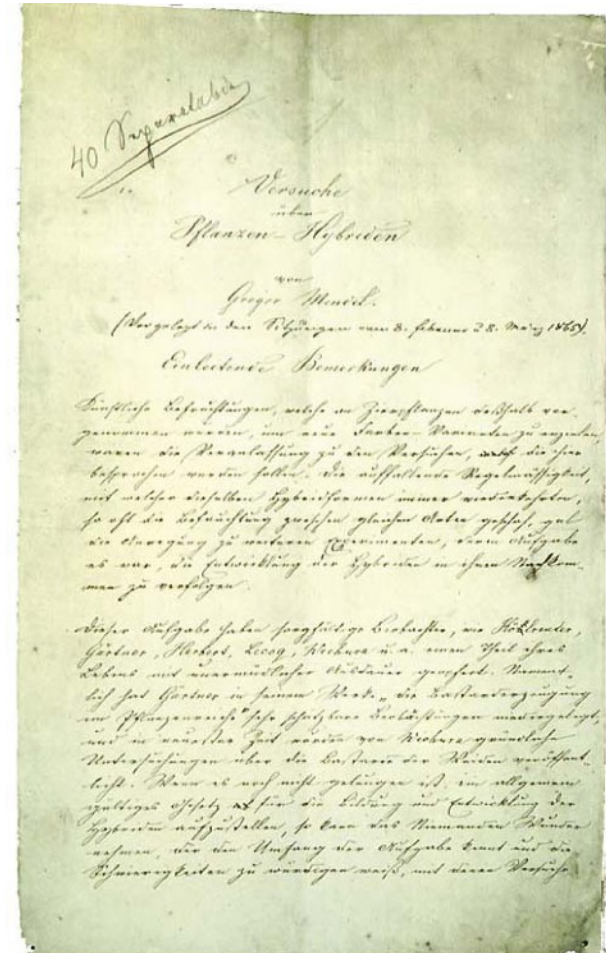 40 Separatabdr.
Versuche
über
Pflanzen-Hybriden
von
Gregor Mendel.
(Vorgelegt in den Sitzungen vom 8. Februar u. 8. März 1865).
Einleitende Bemerkungen
Künstliche Befruchtungen, welche an Zierpflanzen deßhalb vor-
genommen wurden, um neue Farben-Varianten zu erzielen,
waren die Veranlassung zu den Versuchen, die hier
besprochen werden sollen. Die auffallende Regelmässigkeit,
mit welcher dieselben Hybridformen immer wiederkehrten,
so oft die Befruchtung zwischen gleichen Arten geschah, gab
die Anregung zu weiteren Experimenten, deren Aufgabe
es war, die Entwicklung der Hybriden in ihren Nachkom-
men zu verfolgen.
Dieser Aufgabe haben sorgfältige Beobachter, wie Kölreuter,
Gärtner, Herbert, Lecoq, Wichura u. a. einen Theil ihres
Lebens mit unermüdlicher Ausdauer geopfert. Nament-
lich hat Gärtner in seinem Werke „die Bastarderzeugung
im Pflanzenreiche" sehr schätzbare Beobachtungen niedergelegt,
und in neuester Zeit wurden von Wichura gründliche
Untersuchungen über die Bastarde der Weiden veröffent-
licht. Wenn es noch nicht gelungen ist, ein allgemein
gültiges Gesetz für die Bildung und Entwicklung der
Hybriden aufzustellen, so kann das Niemanden Wunder
nehmen, der den Umfang der Aufgabe kennt und die
Schwierigkeiten zu würdigen weiß, mit denen Versuche